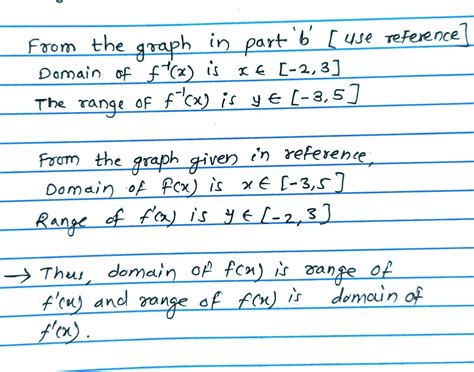 From the graph in part 'b' [use reference]
Domain of f⁻¹(x) is x ∈ [-2,3]
The range of f⁻¹(x) is y ∈ [-3,5]
From the graph given in reference,
Domain of f(x) is x ∈ [-3,5]
Range of f'(x) is y ∈ [-2,3]
→ Thus, domain of f(x) is range of
f'(x) and range of f(x) is domain of
f'(x).